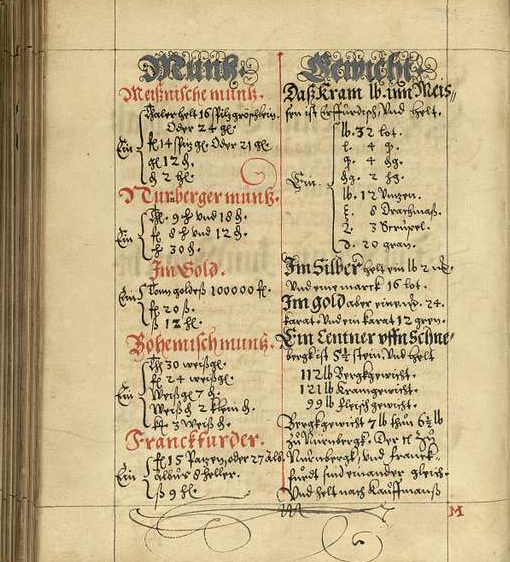 Müntz.
Meißnische müntz.
Thaler helt 16 Spitzgröschlein.
Oder 24 gl.
Ein
fl 14 Spitz gl. Oder 21 gl.
gl 12 ₰.
₰ 2 hl.
Nürberger müntz.
Th. 9 ß vnd 18 ₰.
Ein
fl 8 ß vnd 12 ₰.
ß 30 ₰.
Im Gold.
Ein
Tonn goldeß 100000 fl.
fl 20 ß.
ß 12 hl.
Bohemisch müntz.
Th 30 weißgl.
fl 24 weißgl.
Ein
Weißgl 7 ₰.
Weiß ₰ 2 klein ₰.
3 Weiß ₰.
Franckfurder.
fl 15 Patzen, oder 27 Alb.
Ein
albus 8 heller.
ß 9 hl.
Gewicht.
Daß Kram lb. im Meis„
sen ist Erffürdisch, Vnd helt.
lb. 32 lot.
l. 4 q.
q. 4 ₰g.
Ein
₰g. 2 hg.
lb. 12 Vntzen.
8 Drachmaß.
3 Screupel.
20 gran.
Im Silber helt ein lb 2 mk
Vnd eine marck 16 lot.
Im gold aber eine mk. 24.
karat. Vnd ein karat 12 gren.
Ein Centner vffn Schne„
bergk ist 5½ stein. Vnd helt
112 lb Bergkgewicht.
121 lb Kramgewicht.
99 lb fleischgewicht.
Bergkgewicht 7 lb thun 6½ lb
zu Nürnbergk. Der zu
Nürnbergk, Vnd Franck„
furdt sind einander gleich.
Vnd helt nach Kauffmanß
M